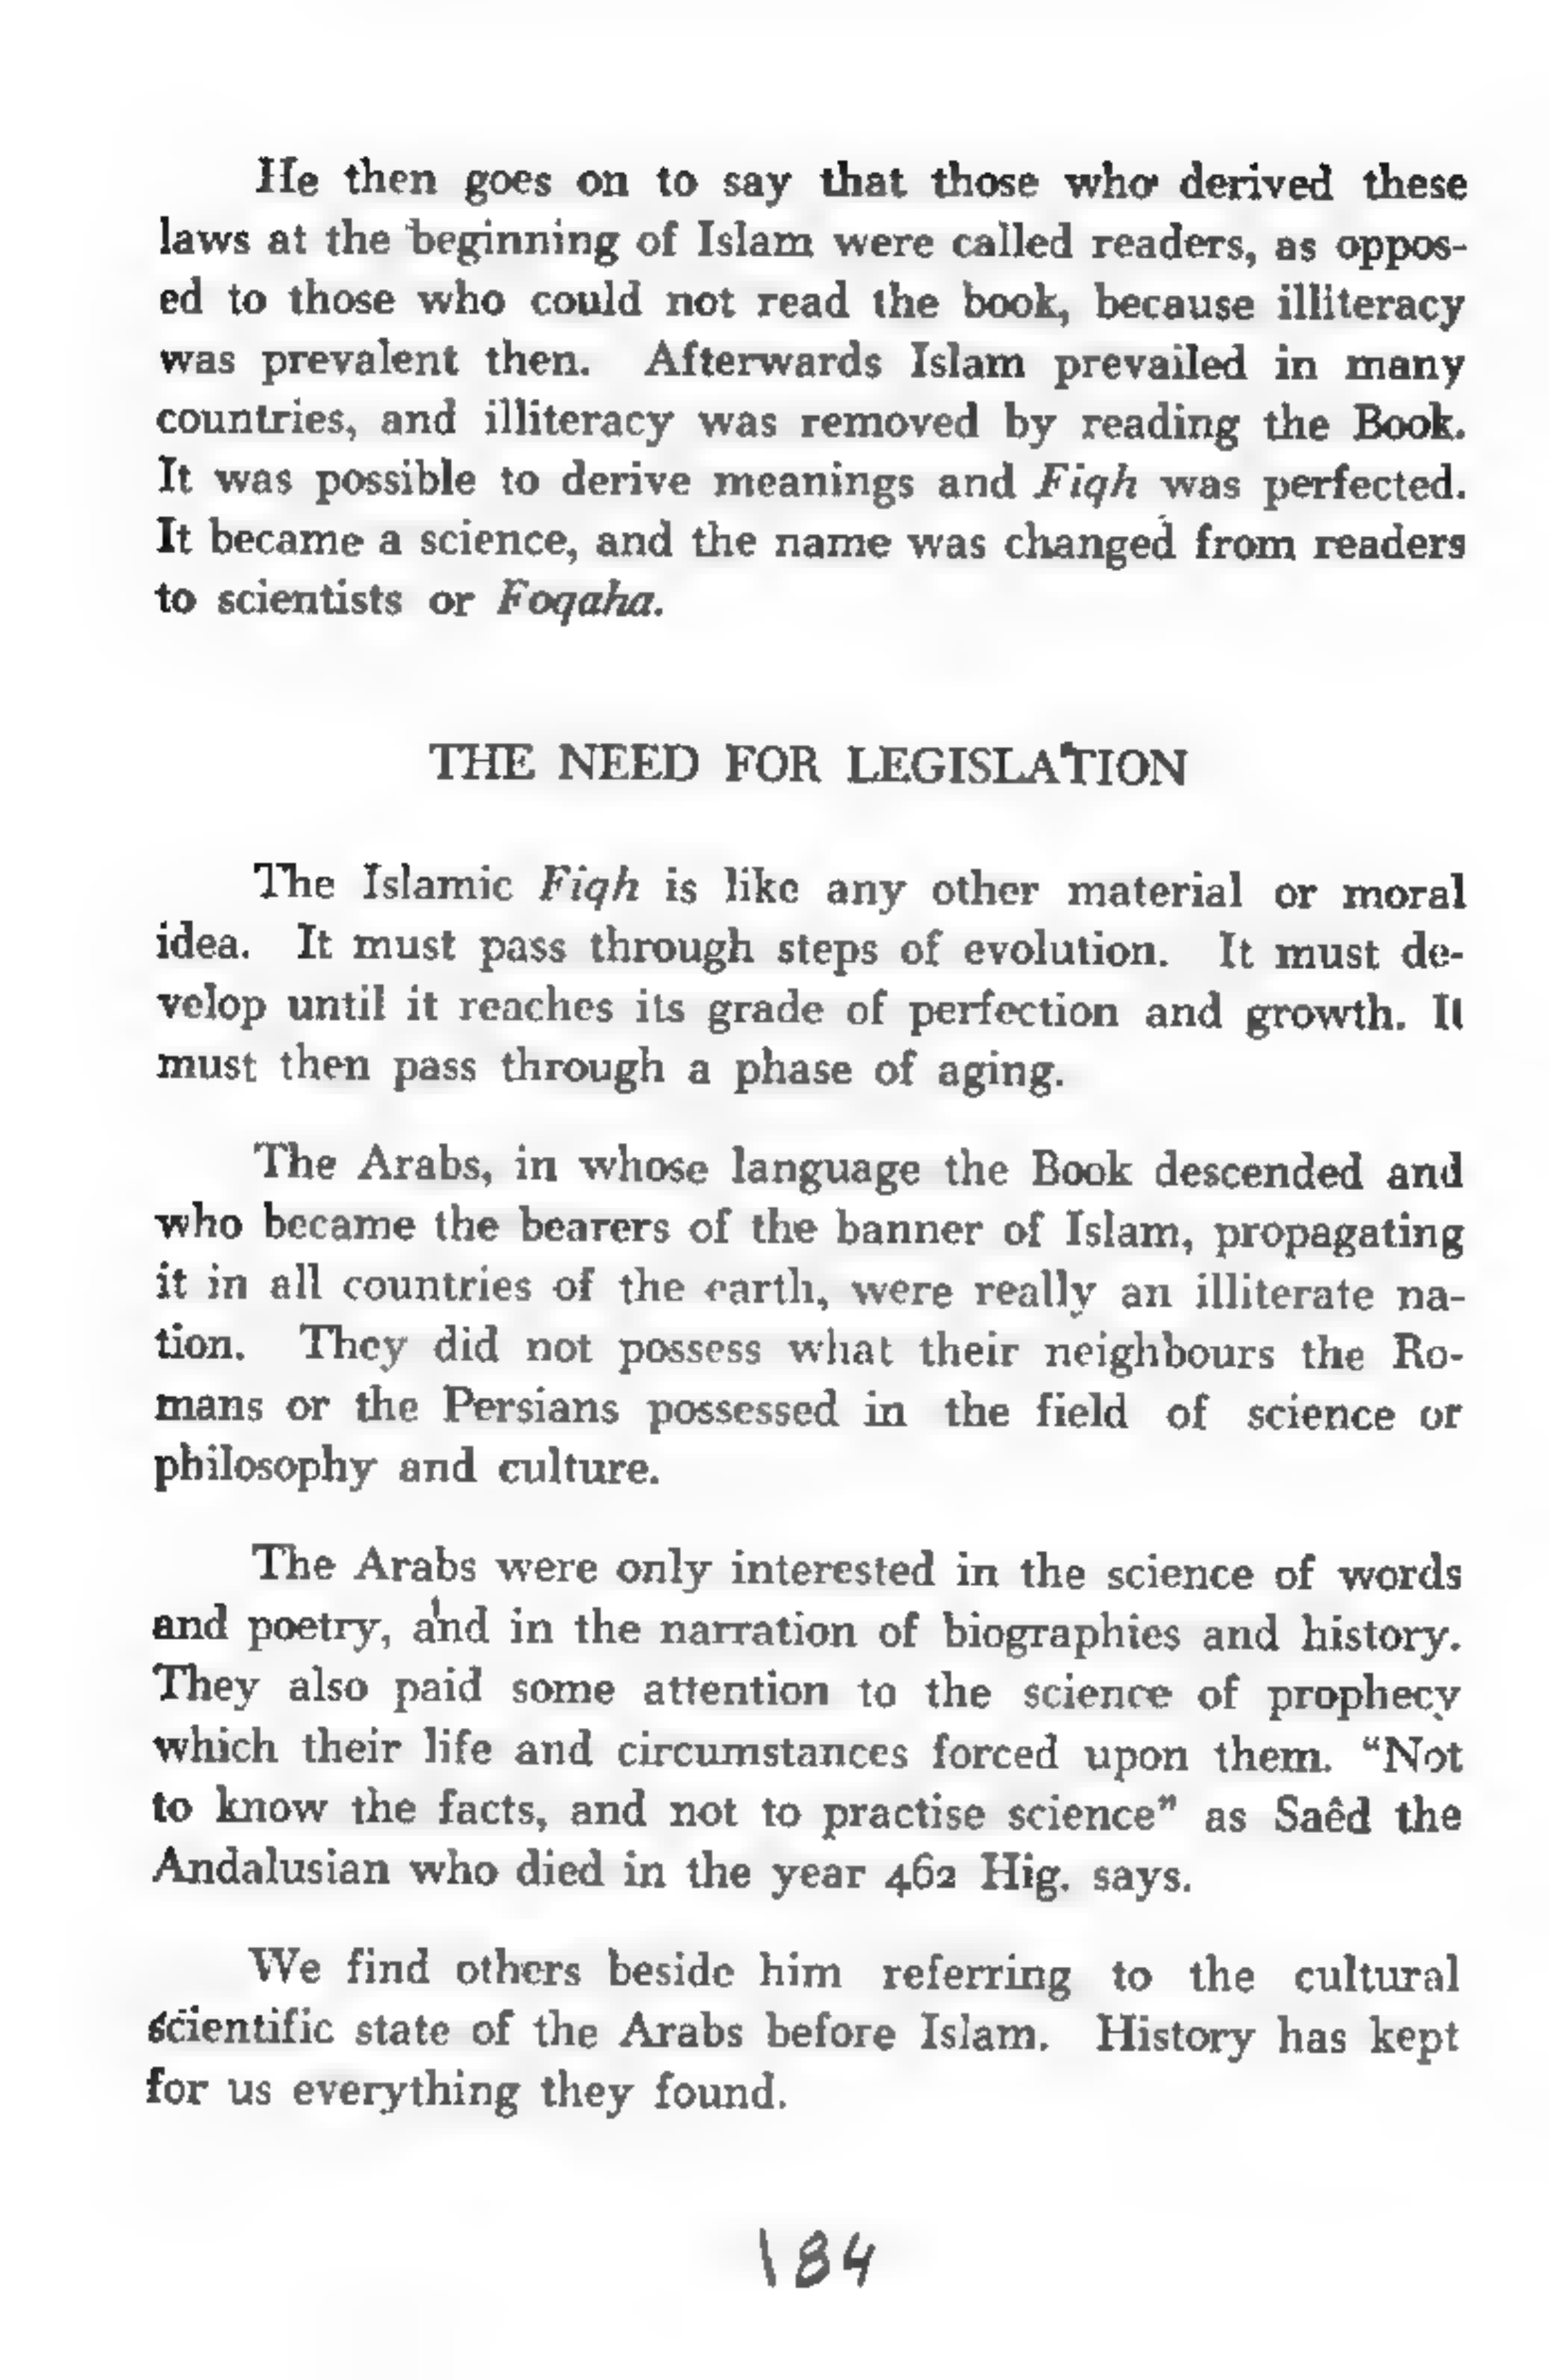 He then goes on to say that those who derived these
laws at the beginning of Islam were called readers, as oppos-
ed to those who could not read the book, because illiteracy
was prevalent then. Afterwards Islam prevailed in many
countries, and illiteracy was removed by reading the Book.
It was possible to derive meanings and Fiqh was perfected.
It became a science, and the name was changed from readers
to scientists or Foqaha.
THE NEED FOR LEGISLATION
The Islamic Fiqh is like any other material or moral
idea. It must pass through steps of evolution. It must de-
velop until it reaches its grade of perfection and growth. It
must then pass through a phase of aging.
The Arabs, in whose language the Book descended and
who became the bearers of the banner of Islam, propagating
it in all countries of the earth, were really an illiterate na-
tion. They did not possess what their neighbours the Ro-
mans or the Persians possessed in the field of science or
philosophy and culture.
The Arabs were only interested in the science of words
and poetry, and in the narration of biographies and history.
They also paid some attention to the science of prophecy
which their life and circumstances forced upon them. “Not
to know the facts, and not to practise science” as Saêd the
Andalusian who died in the year 462 Hig. says.
We find others beside him referring to the cultural
scientific state of the Arabs before Islam. History has kept
for us everything they found.
184